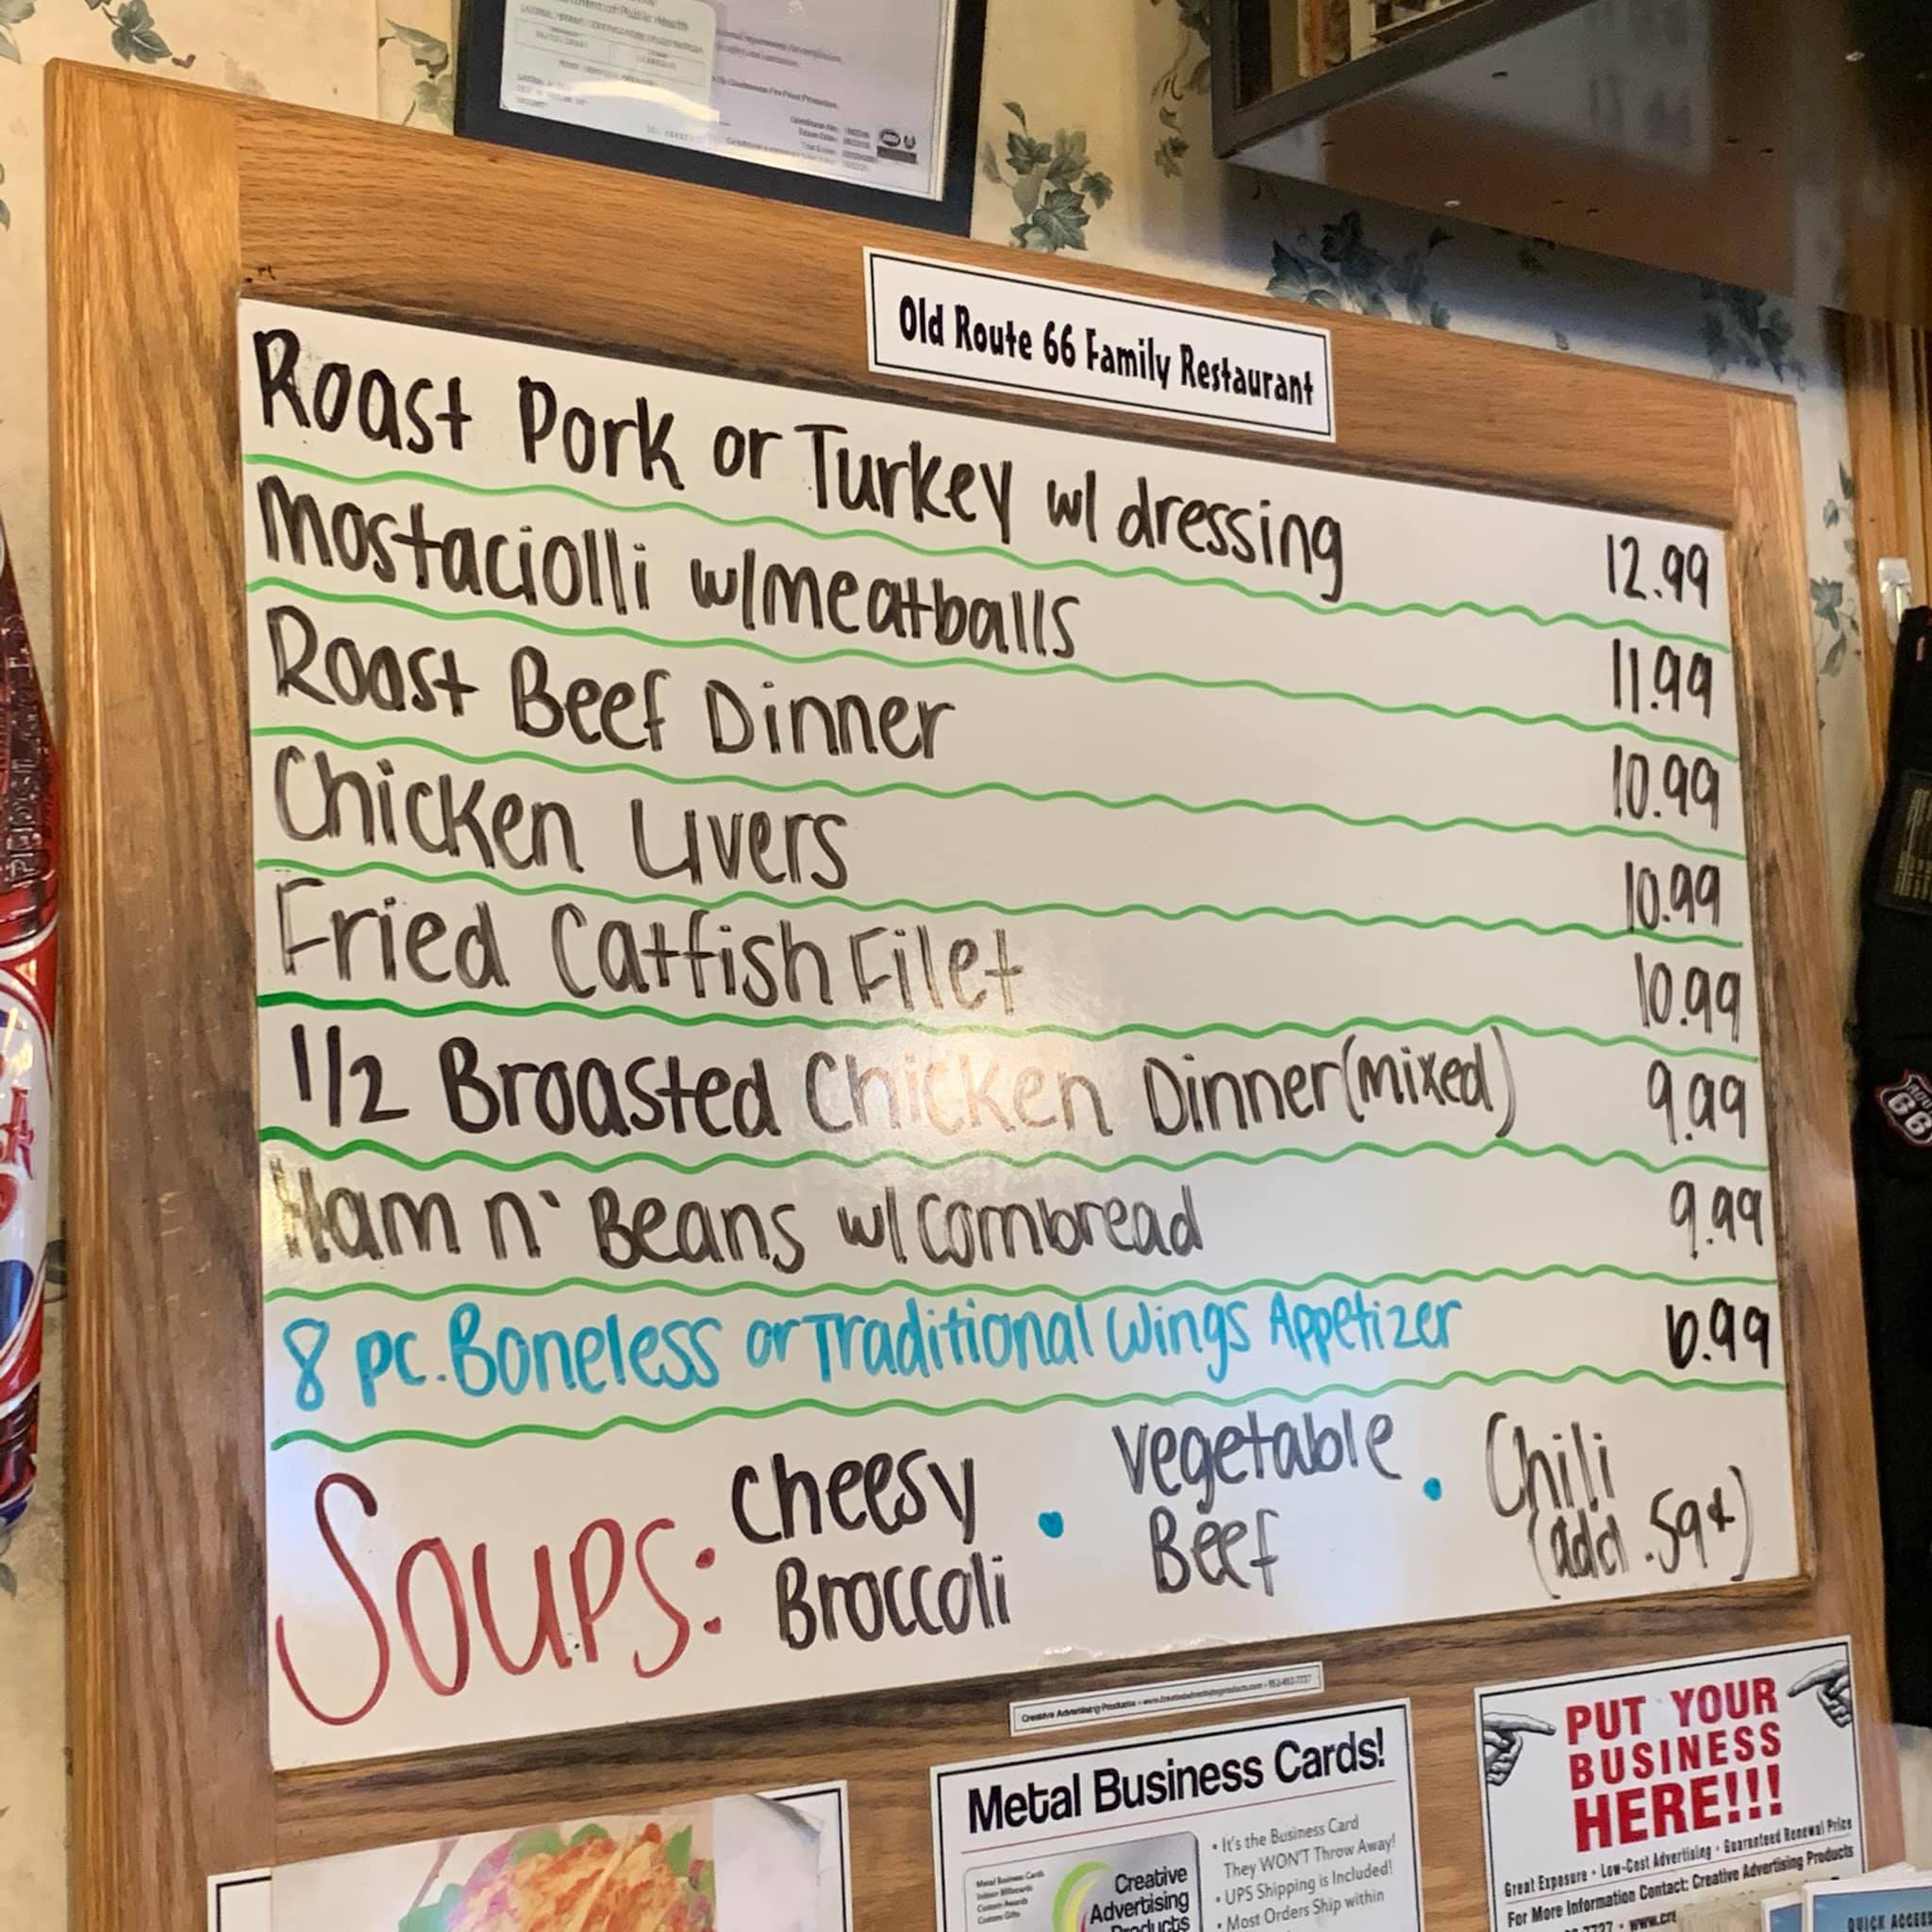 Old Route 66 Family Restaurant
Roast Pork or Turkey w/ dressing 12.99
Mostaciolli w/meatballs 11.99
Roast Beef Dinner 10.99
Chicken Livers 10.99
Fried Catfish Filet 10.99
1/2 Broasted Chicken Dinner (mixed) 9.99
Ham n' Beans w/ Cornbread 9.99
8 pc. Boneless or Traditional Wings Appetizer 6.99
Soups: Cheesy Broccoli • Vegetable Beef • Chili (add .59¢)
Creative Advertising Products • www.creativeadvertisingproducts.com
Metal Business Cards!
• It's the Business Card
They WON'T Throw Away!
• UPS Shipping is Included!
• Most Orders Ship within
Metal Business Cards
Indoor Billboards
Custom Awards
Custom Gifts
Creative
Advertising
Products
PUT YOUR
BUSINESS
HERE!!!
Great Exposure • Low-Cost Advertising • Guaranteed Renewal Price
For More Information Contact: Creative Advertising Products
QUICK ACCES
66